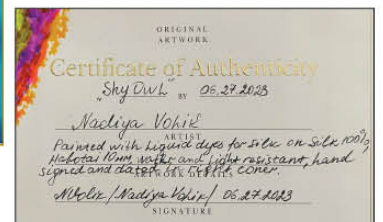 ORIGINAL
ARTWORK
Certificate of Authenticity
"Shy Owl" BY 06.27.2023
Nadiya Vohik
ARTIST
Painted with Liquid dyes for silk on Silk 100%,
Habotai 10mm, water and light resistant, hand
signed and dated in right corner.
ARTWORK DETAILS
/Nadiya Vohik/ 06.27.2023
SIGNATURE